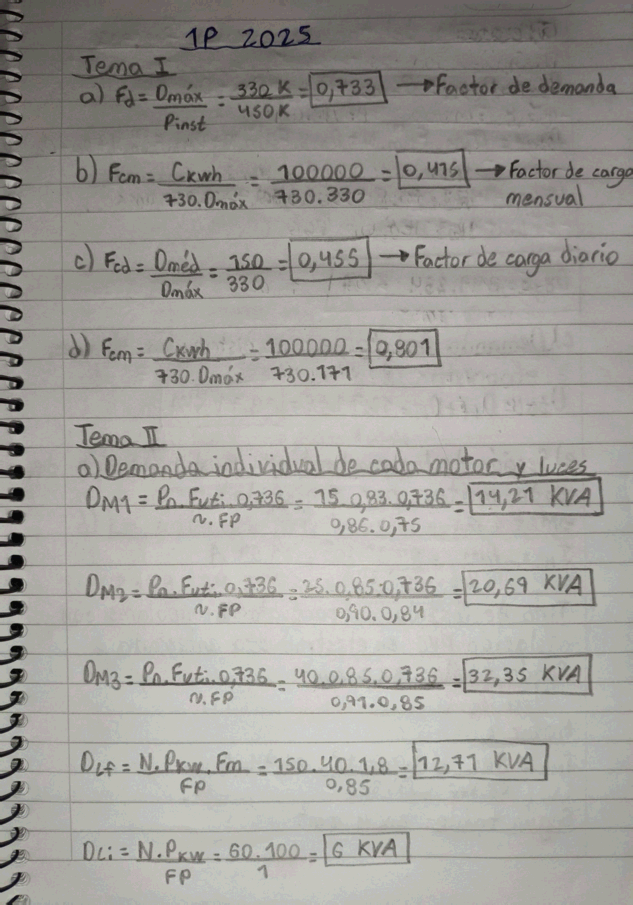 1P 2025
Tema I
a) Fd = Dmáx/Pinst = 330 K/450 K = 0,733 → Factor de demanda
b) Fcm = Ckwh/730.Dmáx = 100000/730.330 = 0,415 → Factor de carga mensual
c) Fcd = Dméd/Dmáx = 150/330 = 0,455 → Factor de carga diario
d) Fcm = Ckwh/730.Dmáx = 100000/730.171 = 0,801
Tema II
a) Demanda individual de cada motor y luces
DM1 = Pn.Futi.0,736/η.FP = 15.0,83.0,736/0,86.0,75 = 14,21 KVA
DM2 = Pn.Futi.0,736/η.FP = 25.0,85.0,736/0,90.0,84 = 20,69 KVA
DM3 = Pn.Futi.0,736/η.FP = 40.0,85.0,736/0,91.0,85 = 32,35 KVA
DLf = N.PKW.Fm/FP = 150.40.1,8/0,85 = 12,71 KVA
DLi = N.PKW/FP = 60.100/1 = 6 KVA